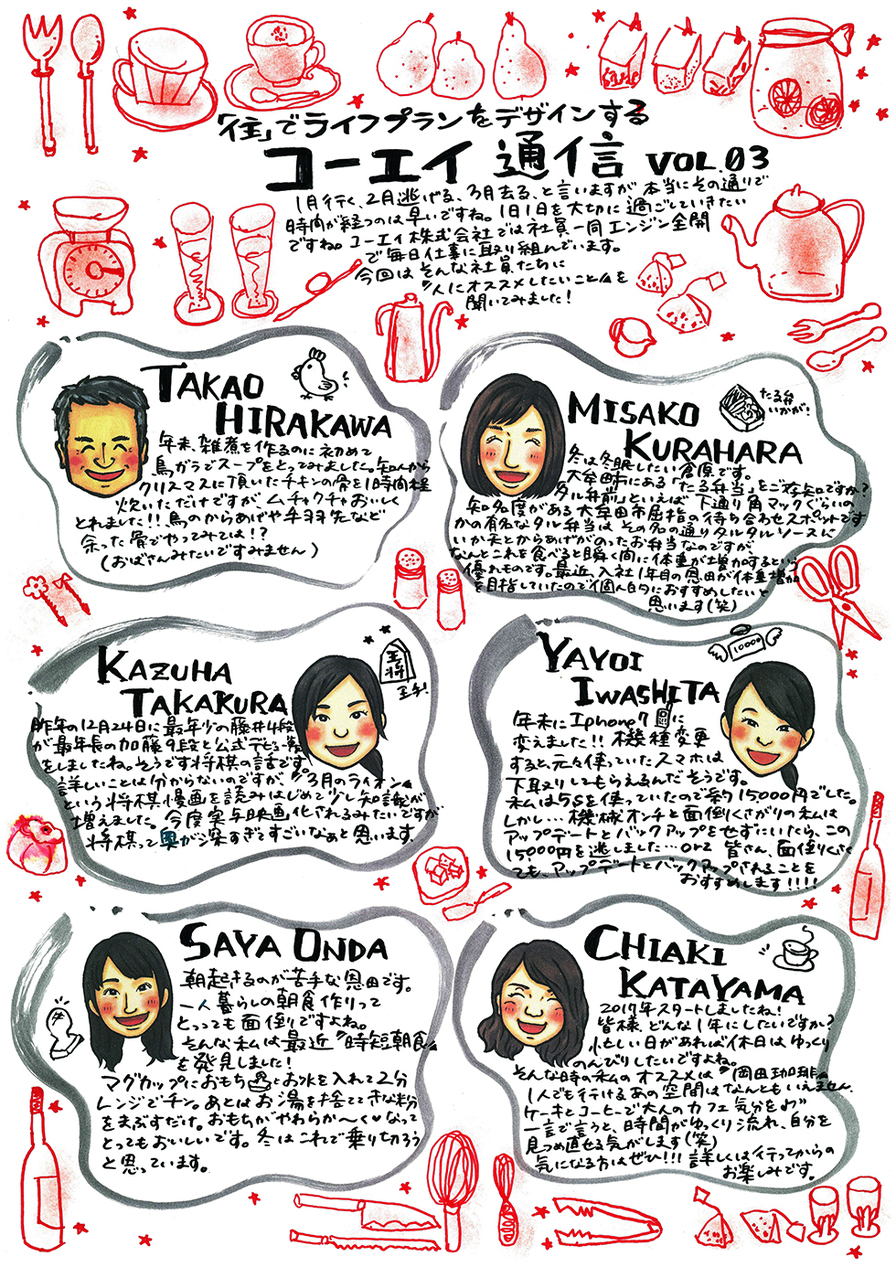 「住」でライフプランをデザインする
コーエイ 通信 VOL.03
1月行く、2月逃げる、3月去る、と言いますが本当にその通りで
時間が経つのは早いですね。1日1日を大切に過ごしていきたい
ですね。コーエイ株式会社では社員一同エンジン全開
で毎日仕事に取り組んでいます。
今回はそんな社員たちに
〝人にオススメしたいこと〟を
聞いてみました!
TAKAO
HIRAKAWA
年末、雑煮を作るのに初めて
鳥がらでスープをとってみました。知人から
クリスマスに頂いたチキンの骨を1時間程
炊いただけですが、ムチャクチャおいしく
とれました!!鳥のからあげや手羽先など
余った骨でやってみては!?
(おばさんみたいですみません)
MISAKO
KURAHARA
たる弁
いかが!
冬は冬眠したい倉原です。
大牟田市にある「たる弁当」をご存知ですか?
「タル弁前」といえば下通り角マックぐらいの
知名度がある大牟田市屈指の待ち合わせスポットです
かの有名なタル弁当はその名の通りタルタルソースに
いか天とからあげがのったお弁当なのですが、
なんとこれを食べると瞬く間に体重が増加するという
優れものです。最近、入社1年目の恩田が体重増加
を目指していたので個人的におすすめしたいと
思います(笑)
KAZUHA
TAKAKURA
王将
王手!
昨年の12月24日に最年少の藤井4段
が最年長の加藤9段と公式デビュー戦
をしましたね。そうです将棋の話です。
詳しいことは分からないのですが、〝3月のライオン〟
という将棋漫画を読みはじめて少し知識が
増えました。今度実写映画化されるみたいですが
将棋って奥が深すぎてすごいなぁと思います。
YAYOI
IWASHITA
10000
年末にIphone7に
変えました!!機種変更
すると元々使っていたスマホは
下取りしてもらえるんだそうです。
私は5sを使っていたので約15000円でした。
しかし…機械オンチと面倒くさがりの私は
アップデートとバックアップをせずにいたら、この
15000円を逃しました…orz 皆さん、面倒くさく
ても、アップデートとバックアップされることを
おすすめします!!!!
SAYA ONDA
朝起きるのが苦手な恩田です。
一人暮らしの朝食作りって
とっっても面倒ですよね。
そんな私は最近〝時短朝食〟
を発見しました!
マグカップにおもちとお水を入れて2分
レンジでチン。あとはお湯を捨ててきな粉
をまぶすだけ。おもちがやわらか〜く♥なって
とってもおいしいです。冬はこれで乗り切ろう
と思っています。
CHIAKI
KATAYAMA
2017年スタートしましたね!
皆様、どんな1年にしたいですか?
忙しい日があれば休日はゆっくり
のんびりしたいですよね。
そんな時の私のオススメは〝岡田珈琲〟
1人でも行けるあの空間はなんともいえません。
ケーキとコーヒーで大人のカフェ気分を♪〟
一言で言うと、時間がゆっくり流れ、自分を
見つめ直せる気がします(笑)
気になる方はぜひ!!!詳しくは行ってからの
お楽しみです。